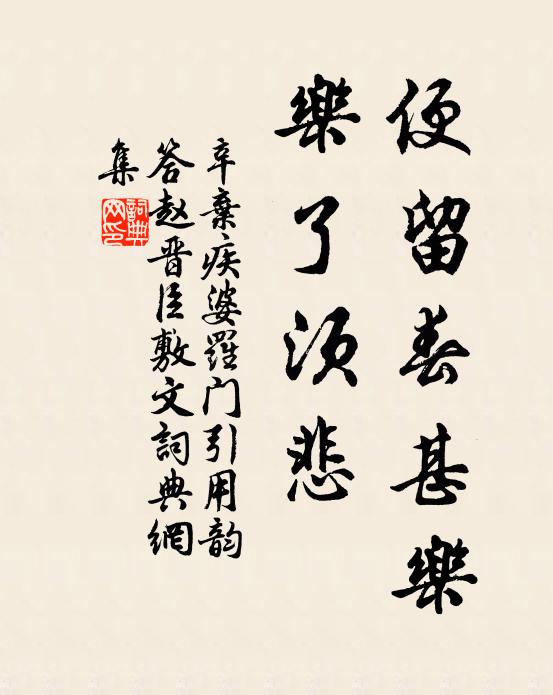 便留春甚樂
樂了須悲
辛棄疾婆羅门引用韵
答赵晋臣敷文詞典網
集
詞典網印